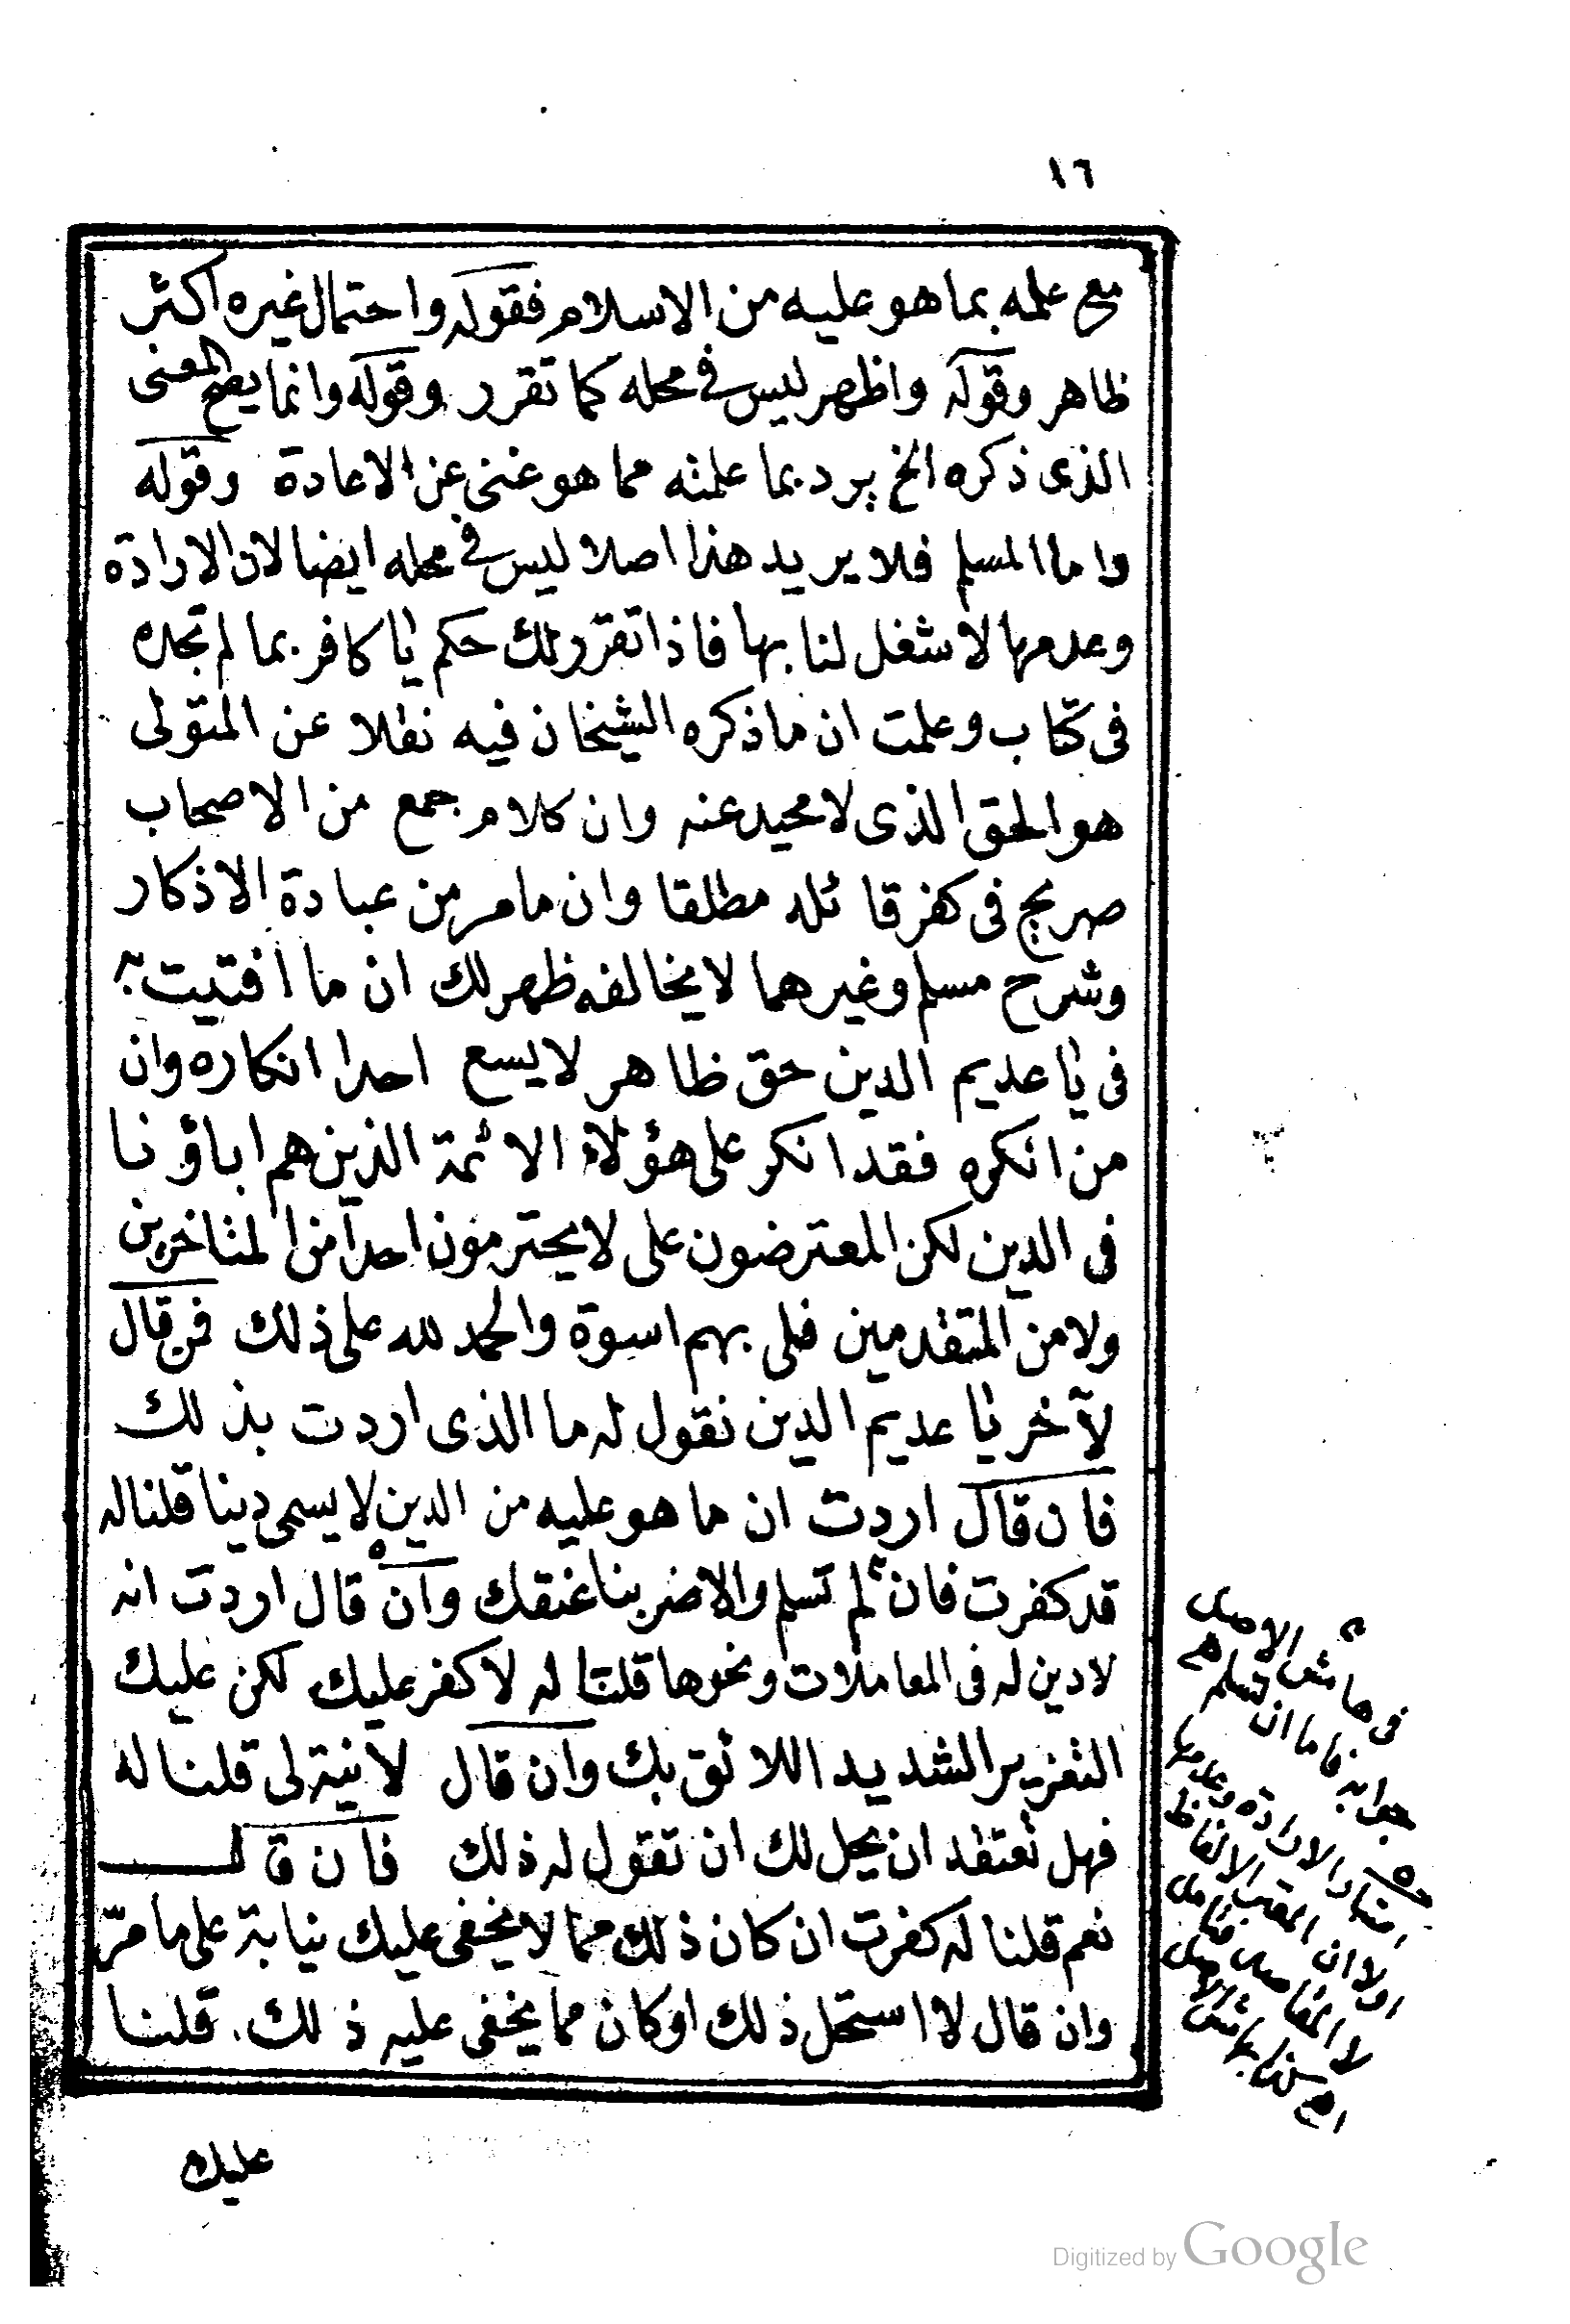 ١٦
مع علمه بما هو عليه من الاسلام فقوله واحتمال غيره اكثر
ظاهر وقوله واظهر ليس فى محله كما تقرر وقوله وانما يصح المعنى
الذى ذكره الخ يرد بما علمته مما هو غنى عن الاعادة وقوله
واما المسلم فلا يريد هذا اصلا ليس فى محله ايضا لان الارادة
وعدمها لا شغل لنا بها فاذا تقرر لك حكم يا كافر بما لم تجده
فى كتاب وعلمت ان ما ذكره الشيخان فيه نقلا عن المتولى
هو الحق الذى لا محيد عنه وان كلام جمع من الاصحاب
صريح فى كفر قائله مطلقا وان ما مر من عبارة الاذكار
وشرح مسلم وغيرهما لا يخالفه ظهر لك ان ما افتيت به
فى يا عديم الدين حق ظاهر لا يسع احدا انكاره وان
من انكره فقد انكر على هؤلاء الائمة الذين هم اباؤنا
فى الدين لكن المعترضون على لا يحترمون احدا من المتاخرين
ولا من المتقدمين فلى بهم اسوة والحمد لله على ذلك فمن قال
لآخر يا عديم الدين نقول له ما الذى اردت بذلك
فان قال اردت ان ما هو عليه من الدين لا يسمى دينا قلنا له
قد كفرت فان لم تسلم والا ضربنا عنقك وان قال اردت انه
لا دين له فى المعاملات ونحوها قلنا له لا كفر عليك لكن عليك
التعزير الشديد اللائق بك وان قال لا نية لى قلنا له
فهل تعتقد ان يحل لك ان تقول له ذلك فان قال
نعم قلنا له كفرت ان كان ذلك مما لا يخفى عليك نيابة على ما مرّ
وان قال لا استحل ذلك او كان مما يخفى عليه ذلك قلنا
عليك
فى هامش الاصل
جوابه فاما ان تسلم
الارادة وعدمها
اولا ان المعتبر الالفاظ
لا المقاصد فتامل
اهـ كذا بهامش الاصل
Digitized by Google